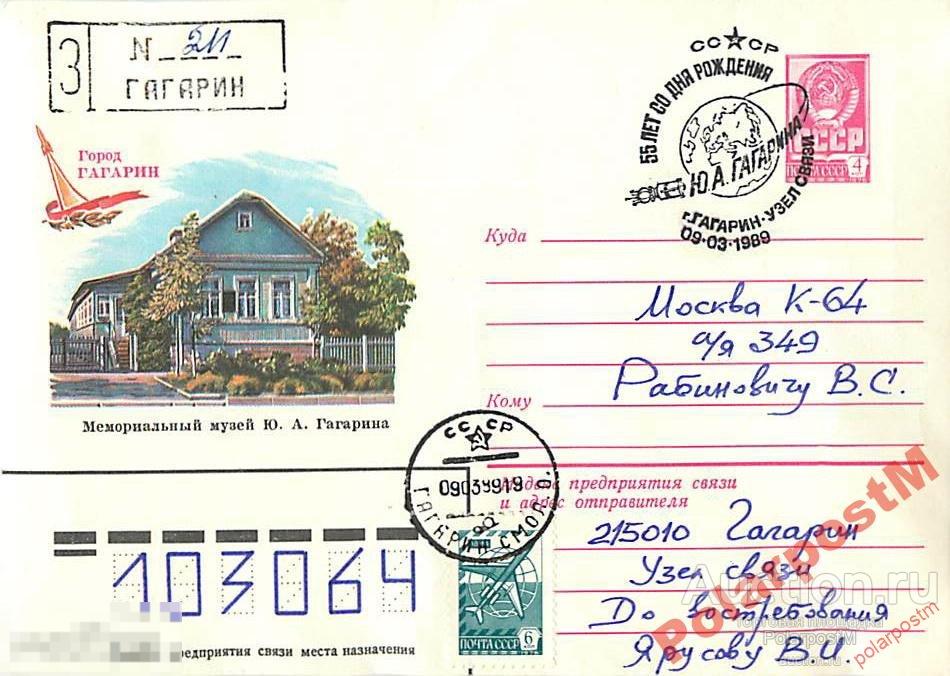 З
N 211
ГАГАРИН
Город
ГАГАРИН
СССР
55 ЛЕТ СО ДНЯ РОЖДЕНИЯ
Ю.А.ГАГАРИНА
г.ГАГАРИН·УЗЕЛ СВЯЗИ
09·03·1989
СССР
ПОЧТА СССР
4
Куда
Москва К-64
а/я 349
Рабиновичу В.С.
Кому
Мемориальный музей Ю. А. Гагарина
СССР
ГАГАРИН СМОЛ. О.
предприятия связи
и адрес отправителя
215010 Гагарин
Узел связи
До востребования
Ярусову В.И.
103064
ПОЧТА СССР
6
редприятия связи места назначения
PolarpostM
Auction.ru
Торговая площадка
PolarpostM
auction.ru
polarpostm